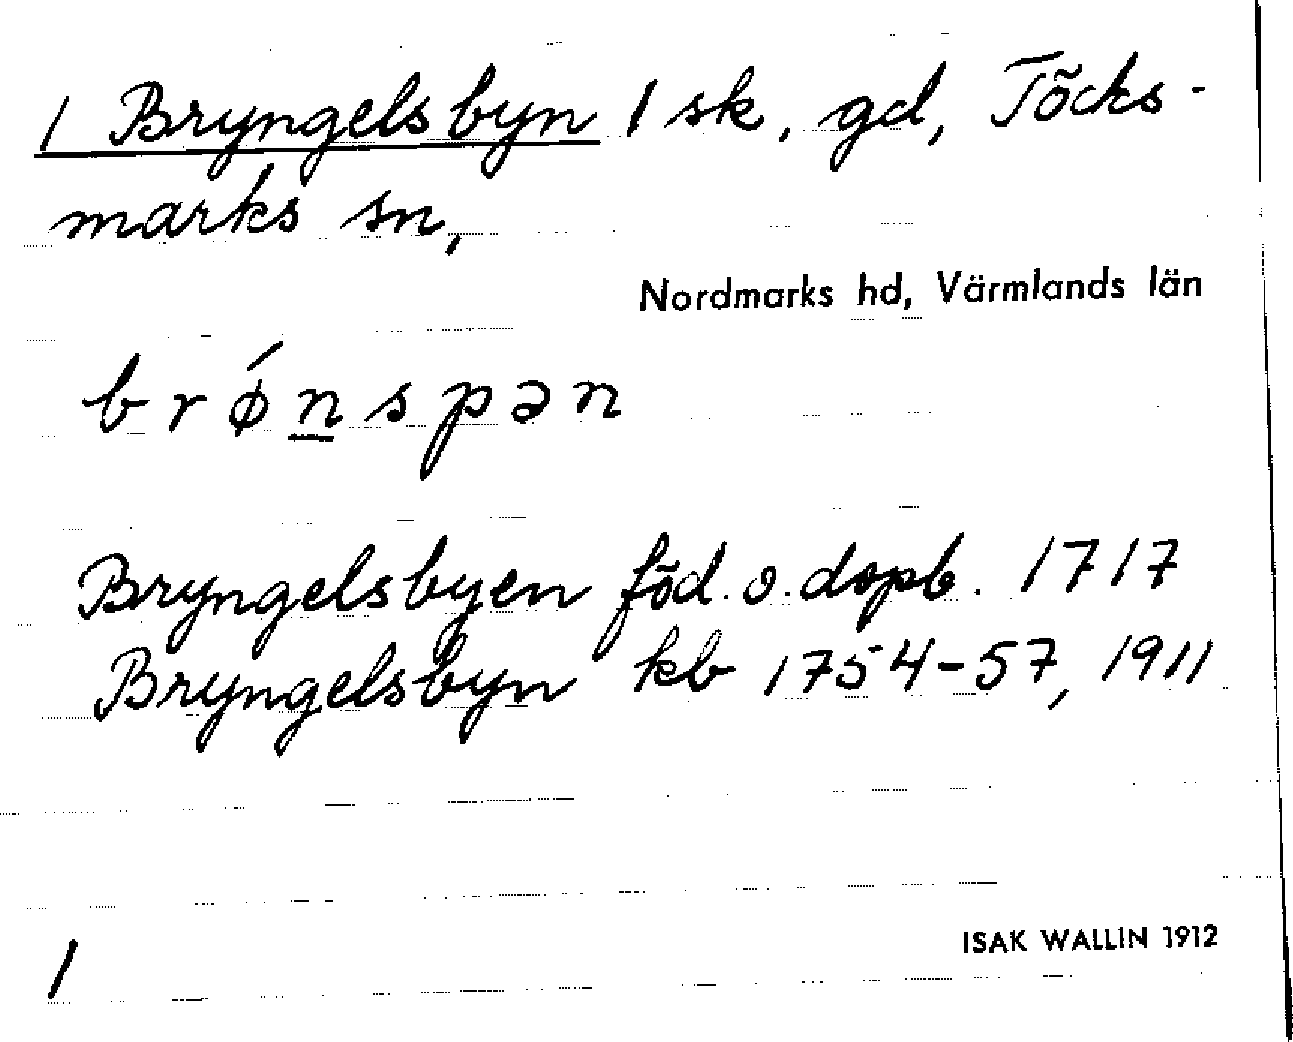 1 Bryngelsbyn 1 sk, gd, Töcks-
marks sn,
Nordmarks hd, Värmlands län
brǿn̲spən
Bryngelsbyen föd. o. dopb. 1717
Bryngelsbyn kb 1754-57, 1911
ISAK WALLIN 1912
1